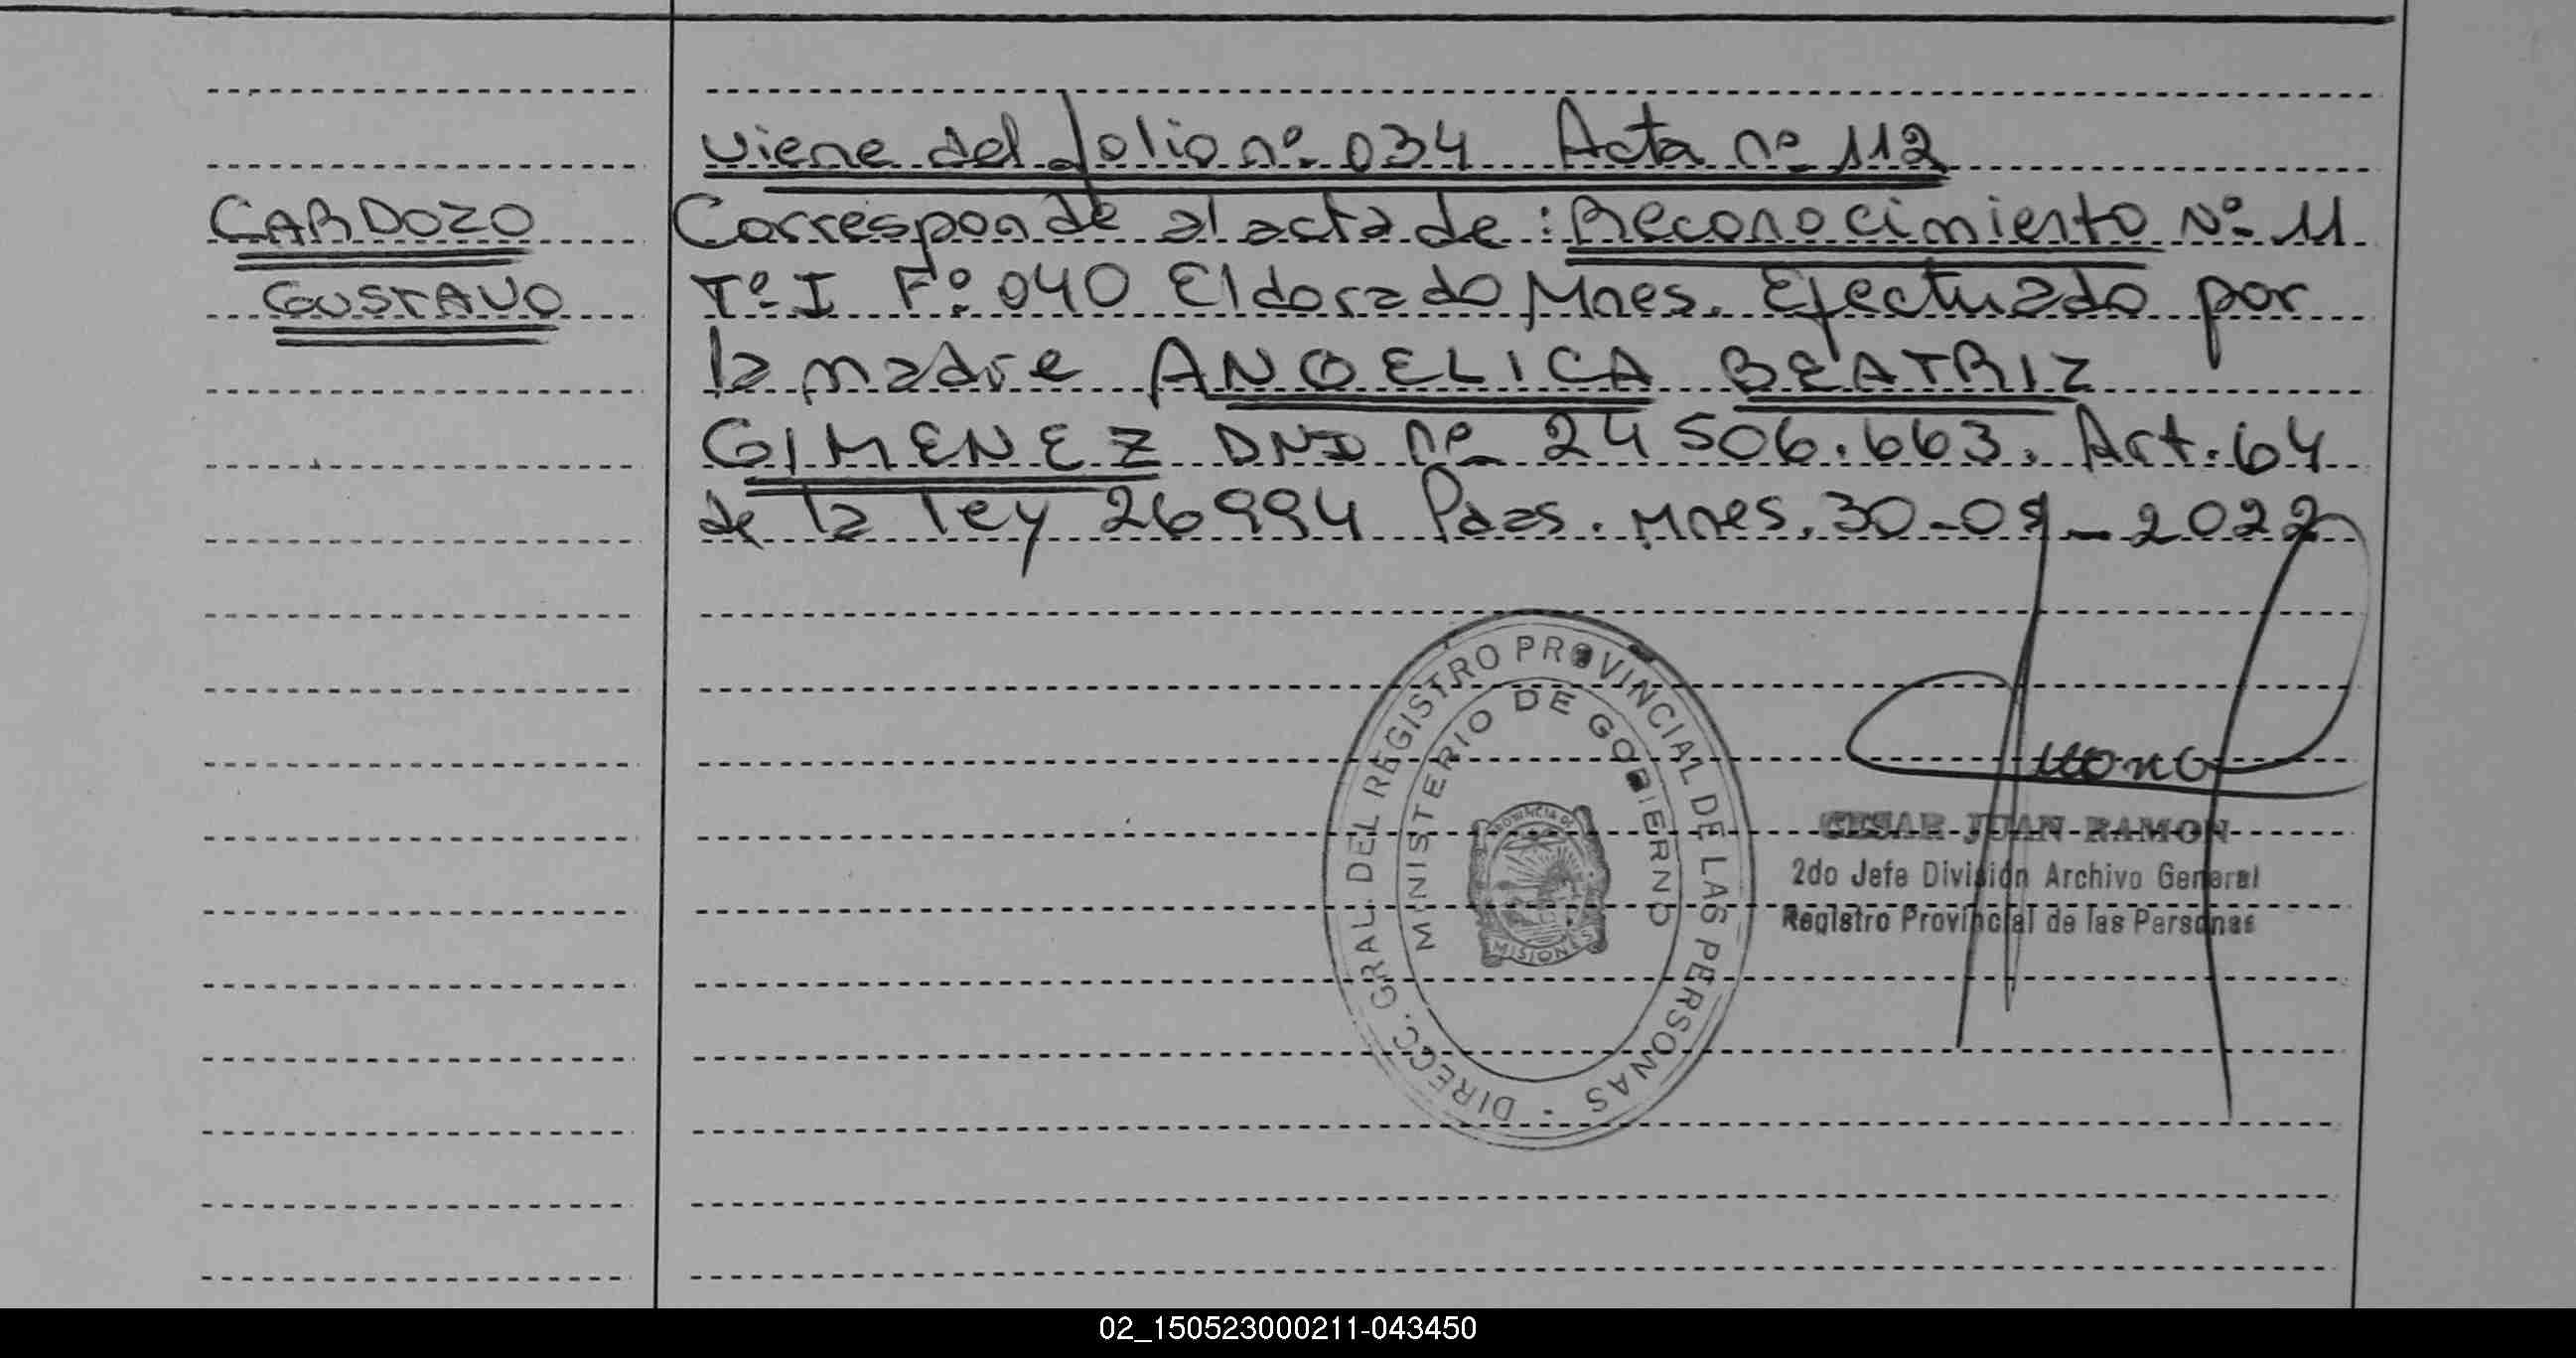 viene del folio nº 034 Acta nº 112
CARDOZO
GUSTAVO
Corresponde al acta de: Reconocimiento Nº 11
Tº I Fº 040 Eldorado Mnes. Efectuado por
la madre ANGELICA BEATRIZ
GIMENEZ DNI nº 24 506.663. Art. 64
de la ley 26994 Pdas. Mnes. 30-09-2022
DIRECC. GRAL. DEL REGISTRO PROVINCIAL DE LAS PERSONAS
MINISTERIO DE GOBIERNO
PROVINCIA DE
MISIONES
CESAR JUAN RAMON
2do Jefe División Archivo General
Registro Provincial de las Personas
02_150523000211-043450